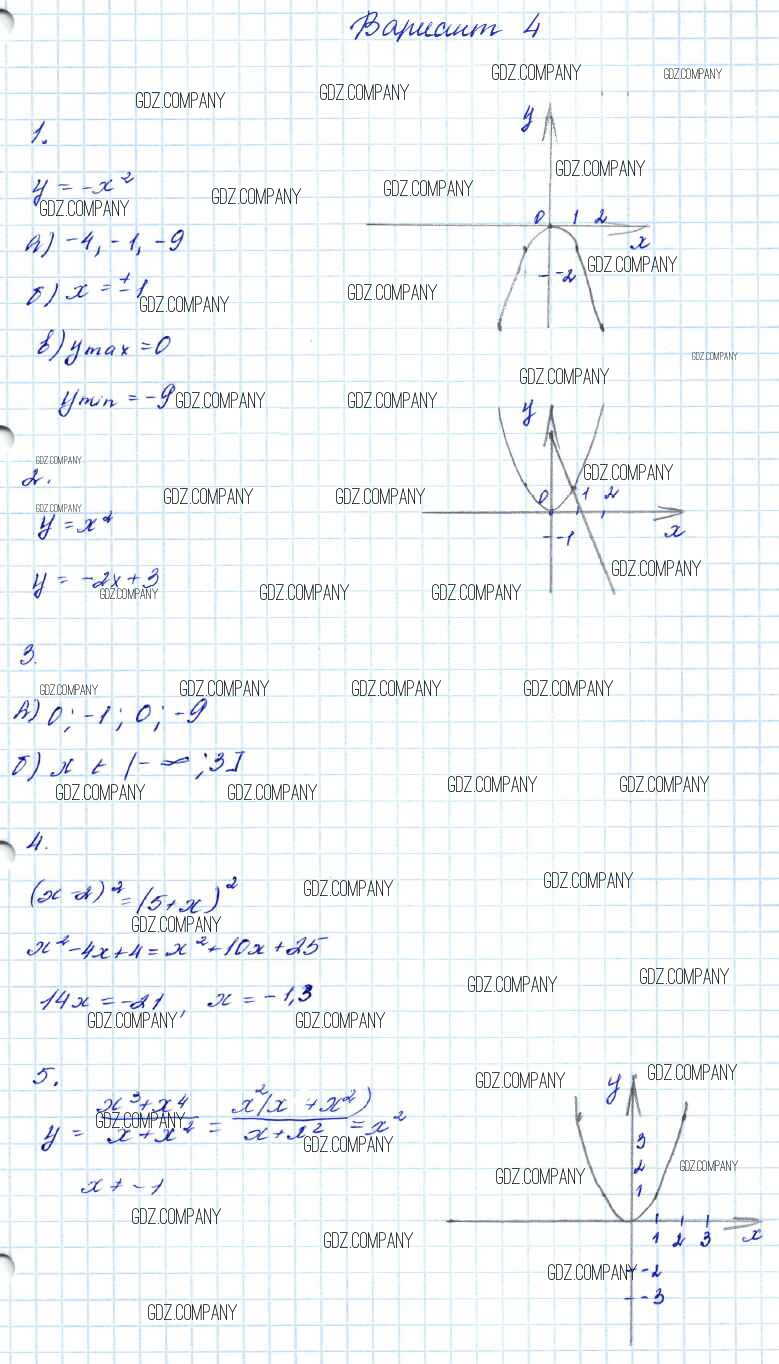 Вариант 4
GDZ.COMPANY GDZ.COMPANY GDZ.COMPANY GDZ.COMPANY
1.
y
GDZ.COMPANY
y = -x²
GDZ.COMPANY GDZ.COMPANY GDZ.COMPANY
0 1 2
x
а) -4, -1, -9
GDZ.COMPANY
-2
б) x = ±1
GDZ.COMPANY GDZ.COMPANY
в) y max = 0
GDZ.COMPANY
GDZ.COMPANY
y min = -9
GDZ.COMPANY GDZ.COMPANY
y
GDZ.COMPANY
2.
GDZ.COMPANY
GDZ.COMPANY GDZ.COMPANY GDZ.COMPANY
0 1 2
y = x²
x
-1
GDZ.COMPANY
y = -2x + 3
GDZ.COMPANY GDZ.COMPANY GDZ.COMPANY
3.
GDZ.COMPANY GDZ.COMPANY GDZ.COMPANY GDZ.COMPANY
а) 0; -1; 0; -9
б) x ∈ (-∞; 3]
GDZ.COMPANY GDZ.COMPANY GDZ.COMPANY GDZ.COMPANY
4.
(x-2)² = (5+x)²
GDZ.COMPANY GDZ.COMPANY
GDZ.COMPANY
x² - 4x + 4 = x² + 10x + 25
GDZ.COMPANY GDZ.COMPANY
14x = -21, x = -1,3
GDZ.COMPANY GDZ.COMPANY
5.
GDZ.COMPANY GDZ.COMPANY
y
y = (x³+x⁴)/(x+x²) = x²(x+x²)/(x+x²) = x²
GDZ.COMPANY GDZ.COMPANY
3
2
1
GDZ.COMPANY GDZ.COMPANY
x ≠ -1
GDZ.COMPANY GDZ.COMPANY
1 2 3 x
-2
-3
GDZ.COMPANY
GDZ.COMPANY